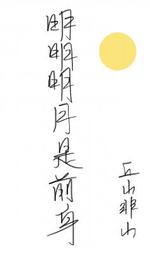 明明明月是前身
丘山非山